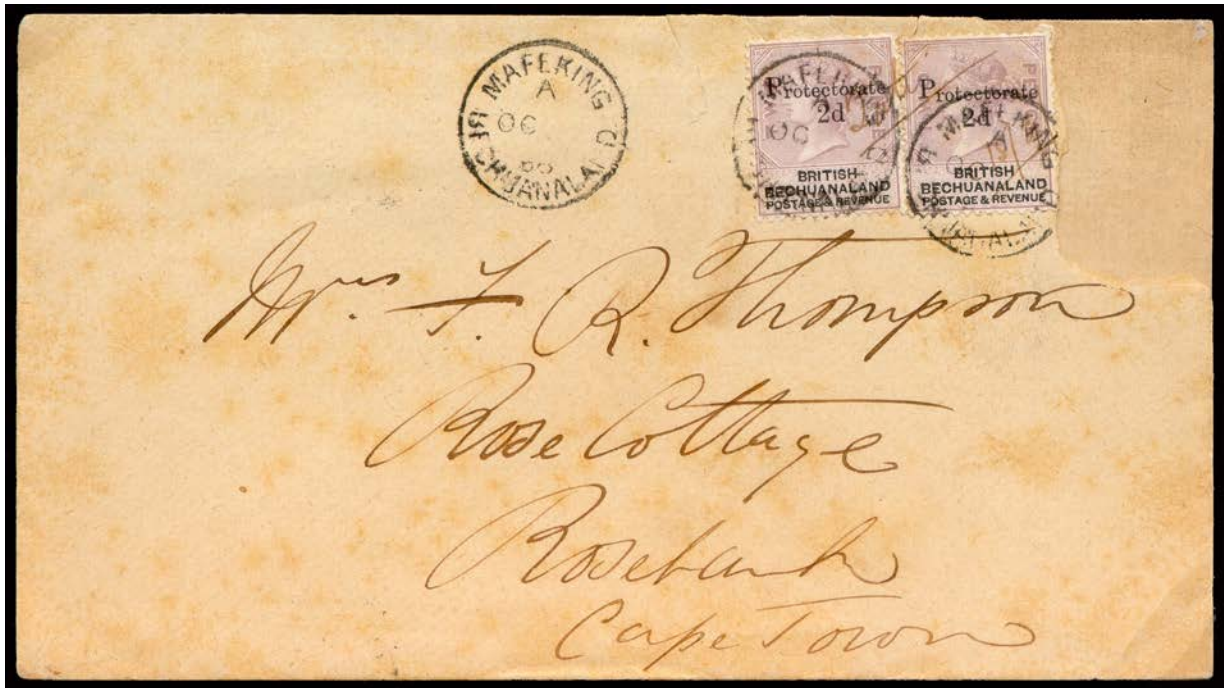 MAFEKING
A
OC
BECHUANALAND
MAFEKING
OC
Protectorate
2d
BRITISH
BECHUANALAND
POSTAGE & REVENUE
Protectorate
2d
MAFEKING
A
OC
BRITISH
BECHUANALAND
POSTAGE & REVENUE
Mrs F. R. Thompson
Rose Cottage
Rosebank
Cape Town